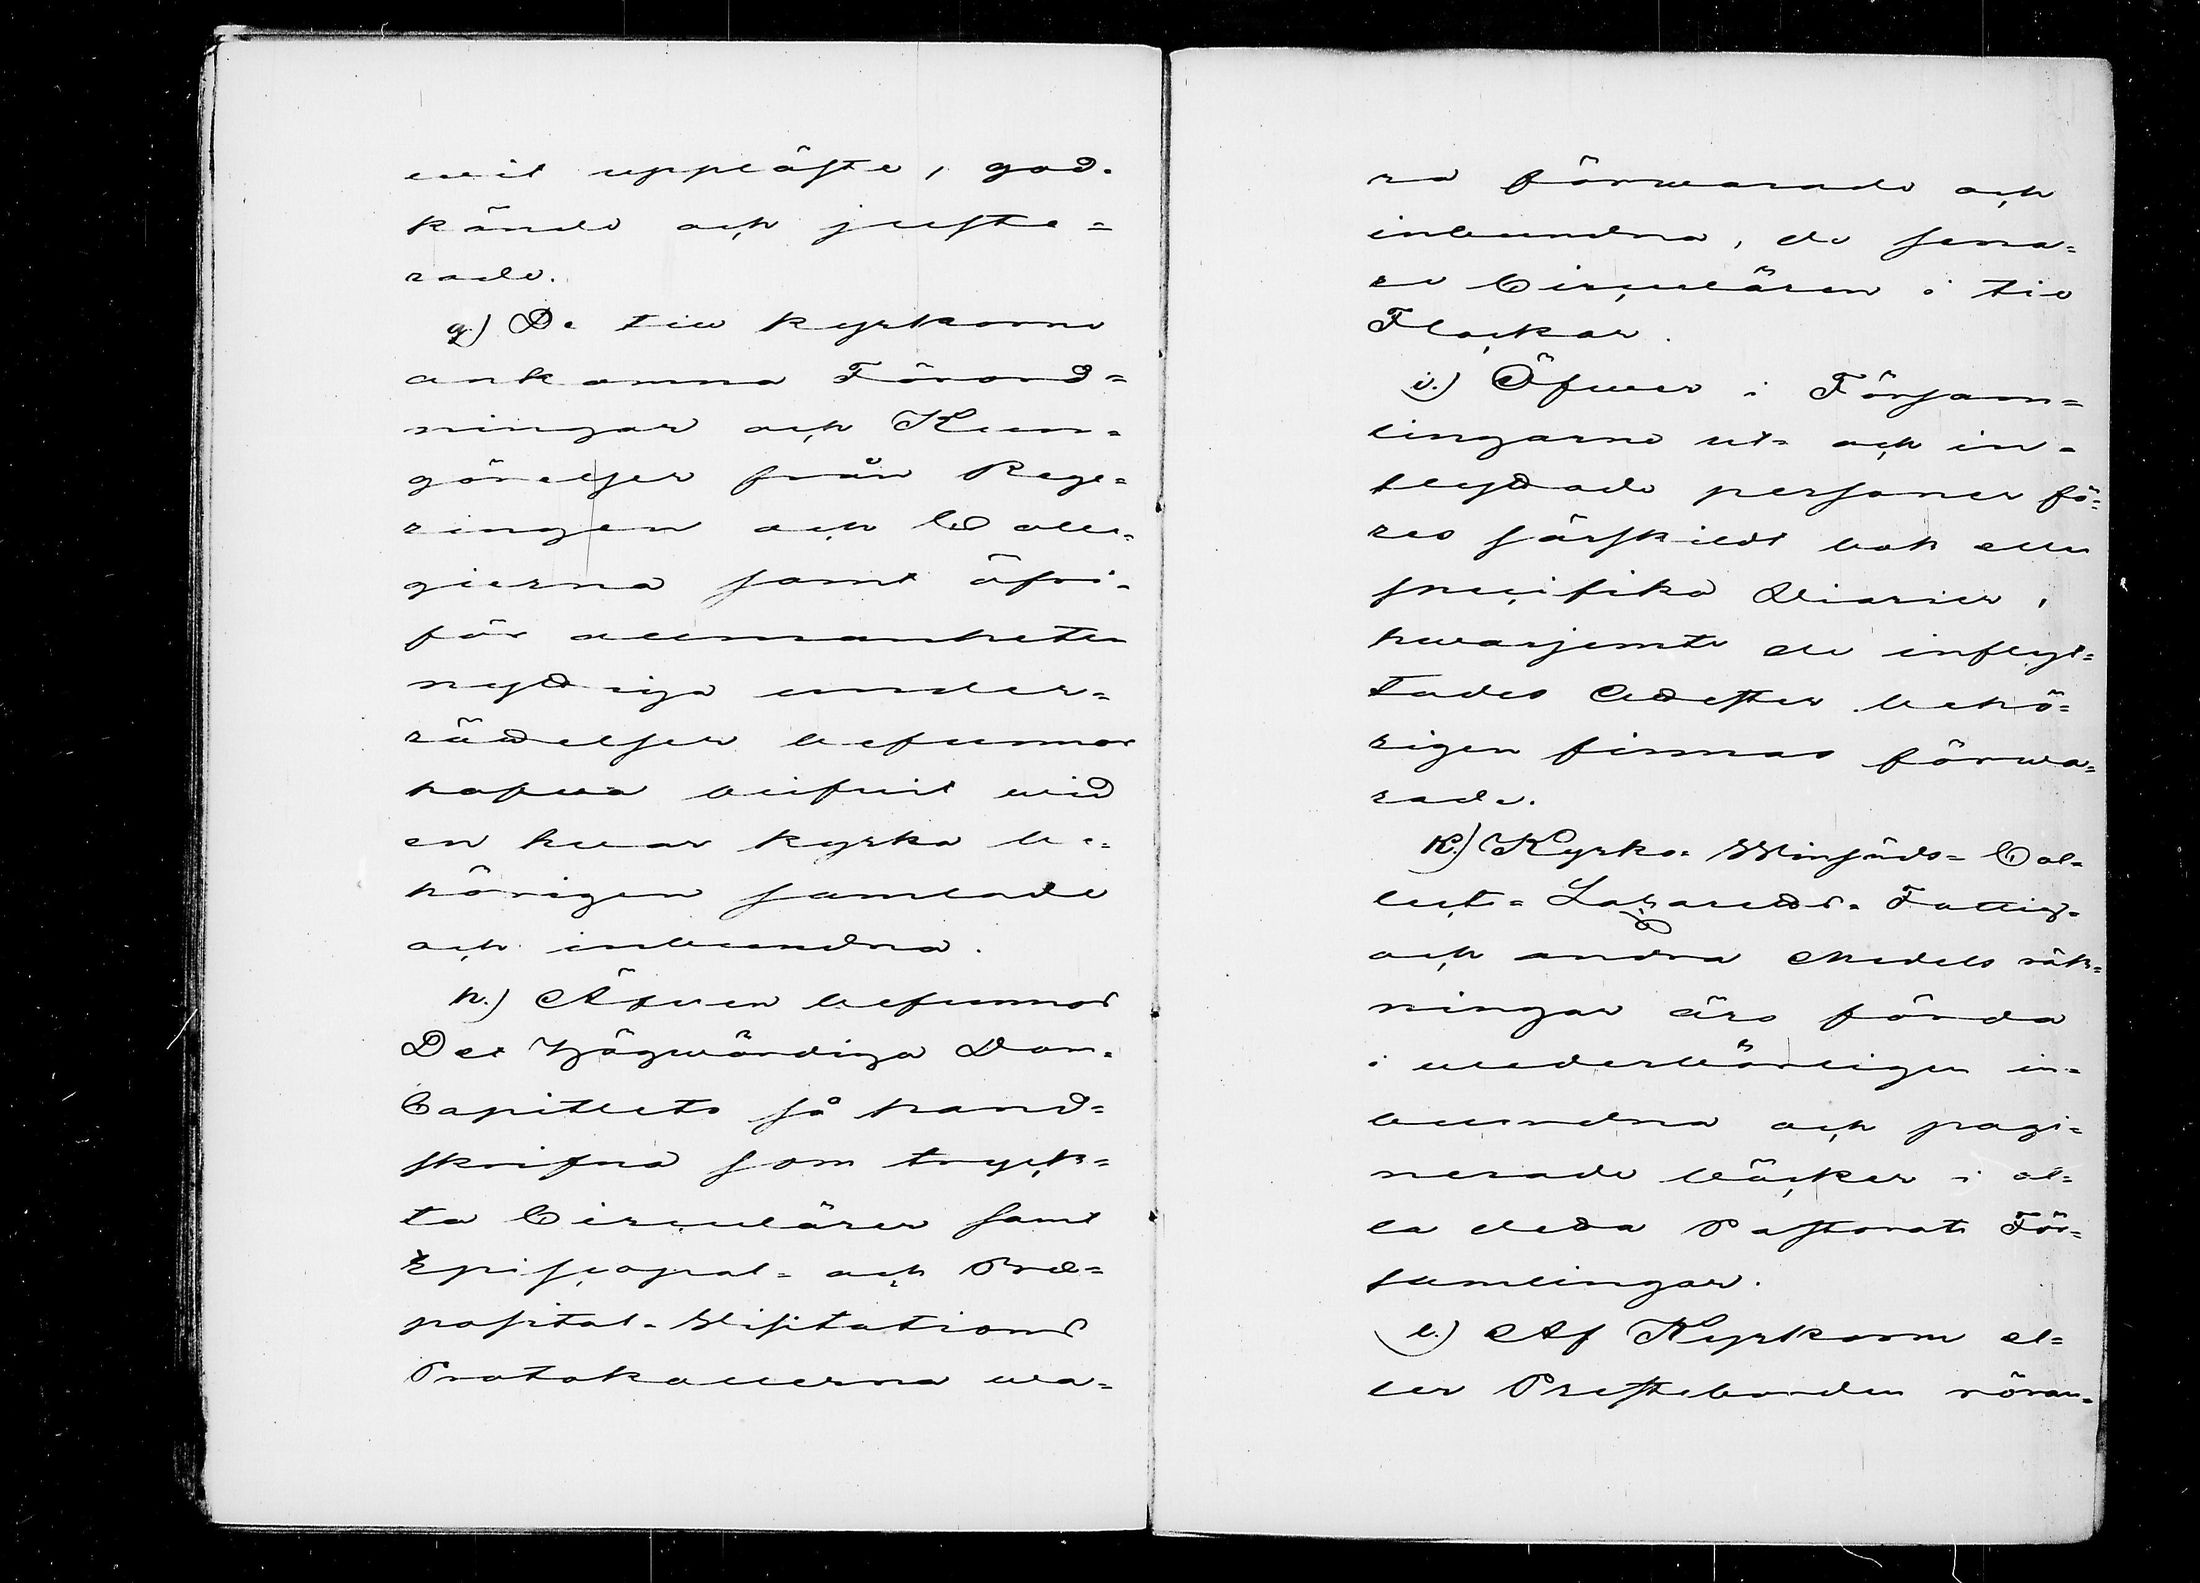 wit uppläste, god-
kände och juste=
rade.
g.) De till kyrkorne
ankomna Förord=
ningar och Kun-
görelser från Rege=
ringen och Colle-
gierna samt öfri-
för allmänheten
nyttiga under=
rättelser befunnos
hafwa blifwit wid
en hwar kyrka be-
hörigen samlade
och inbundna.
h.) Äfwen befunnos
Det Högwärdiga Dom-
Capitlets så hand=
skrifna som tryck=
ta Circulärer samt
Episcopal= och Præ=
posital-Visitations
Protokollerna wa=
ra förwarade och
inbundna, de sena=
re Circulären i tio
Flockar.
i.) Öfwer i Försam=
lingarne ut= och in-
flyttade personer fö=
res särskildt bok eller
specifika Diarier,
hwarjemte de inflyt=
tades Attester behö=
rigen finnas förwa=
rade.
k.) Kyrko= Winjuds= Col=
lect= Lazaretts= Fattig-
och andra Medels räk=
ningar äro förda
i wederbörligen in=
bundna och pagi=
nerade böcker i al=
la detta Pastorats För=
samlingar.
l.) Af Kyrkorne el=
ler Presteborden röran=